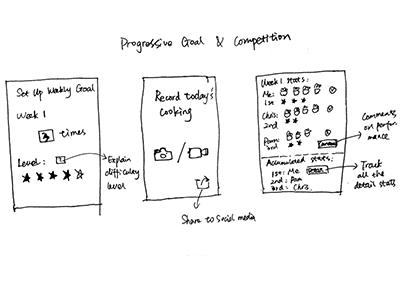 Progressive Goal & Competition
Set Up Weekly Goal
Week 1
3 times
Level:
Explain
difficulty
level
Record today's
cooking
/
Share to social media
Week 1 stats:
Me:
1st
Chris:
2nd
Pam:
3rd
Comments
on perfor
mance
Accumulated stats:
1st: Me
2nd: Pam
3rd: Chris
Track
all the
detail stats